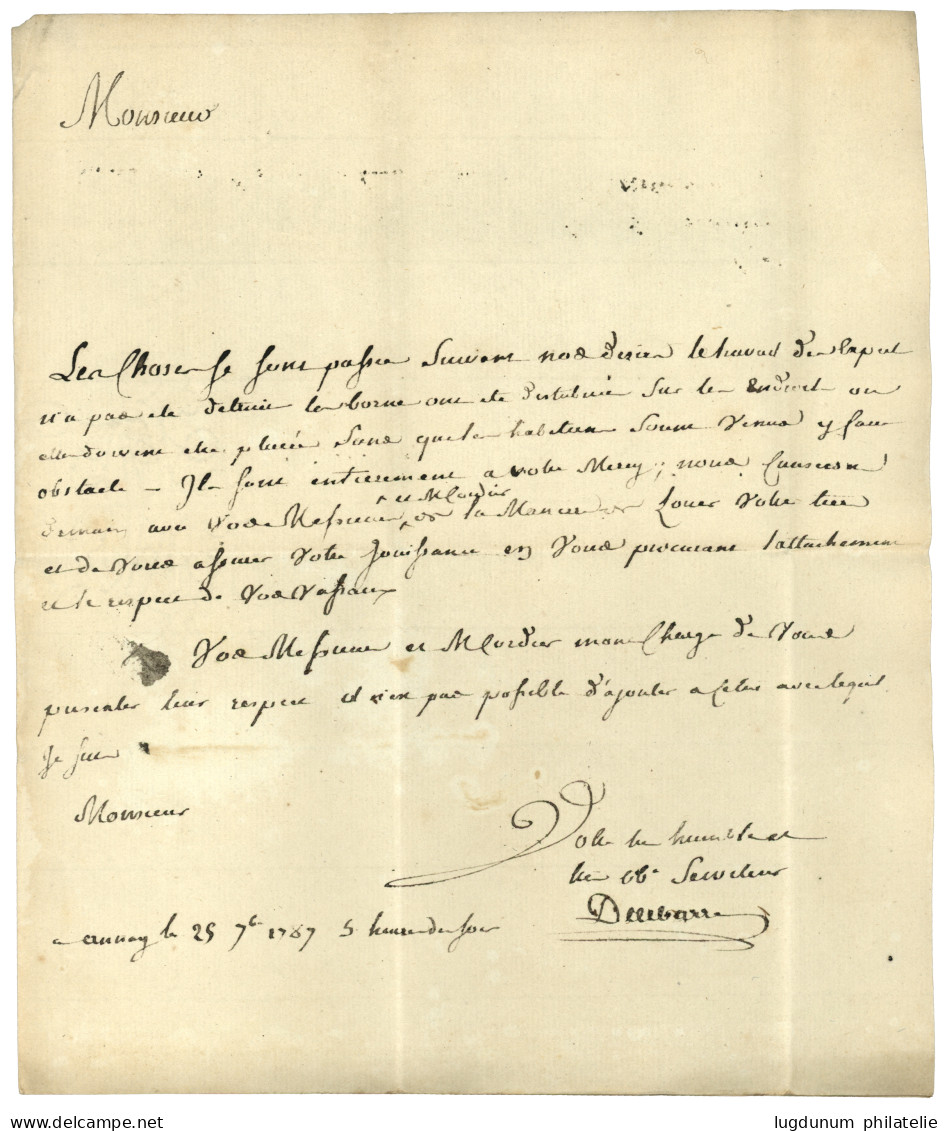 Monsieur
Les Choses se sont passée suivant nos desirs le travail des Expert
n'a pas ete detruit les bornes ont ete distribuée sur les Endroits ou
elles doivent etre placée sans que les habitans soient venus y faire
obstacle - Ils sont entierement a votre Mercy; nous causerons
et M Cordier
demain avec vos Messieurs de la Maniere de Louer votre terre
et de vous assurer votre Jouissance en vous procurant l'attachement
et le respect de vos vassaux
Vos Messieurs et M Cordier mont Charge de vous
presenter leur respect il n'est pas possible d'ajouter a Celui avec lequel
Je suis
Monsieur
Votre tres humble et
tres ob. Serviteur
Delebarre
a annay le 25 7b 1787 5 heures du soir
lugdunum philatelie